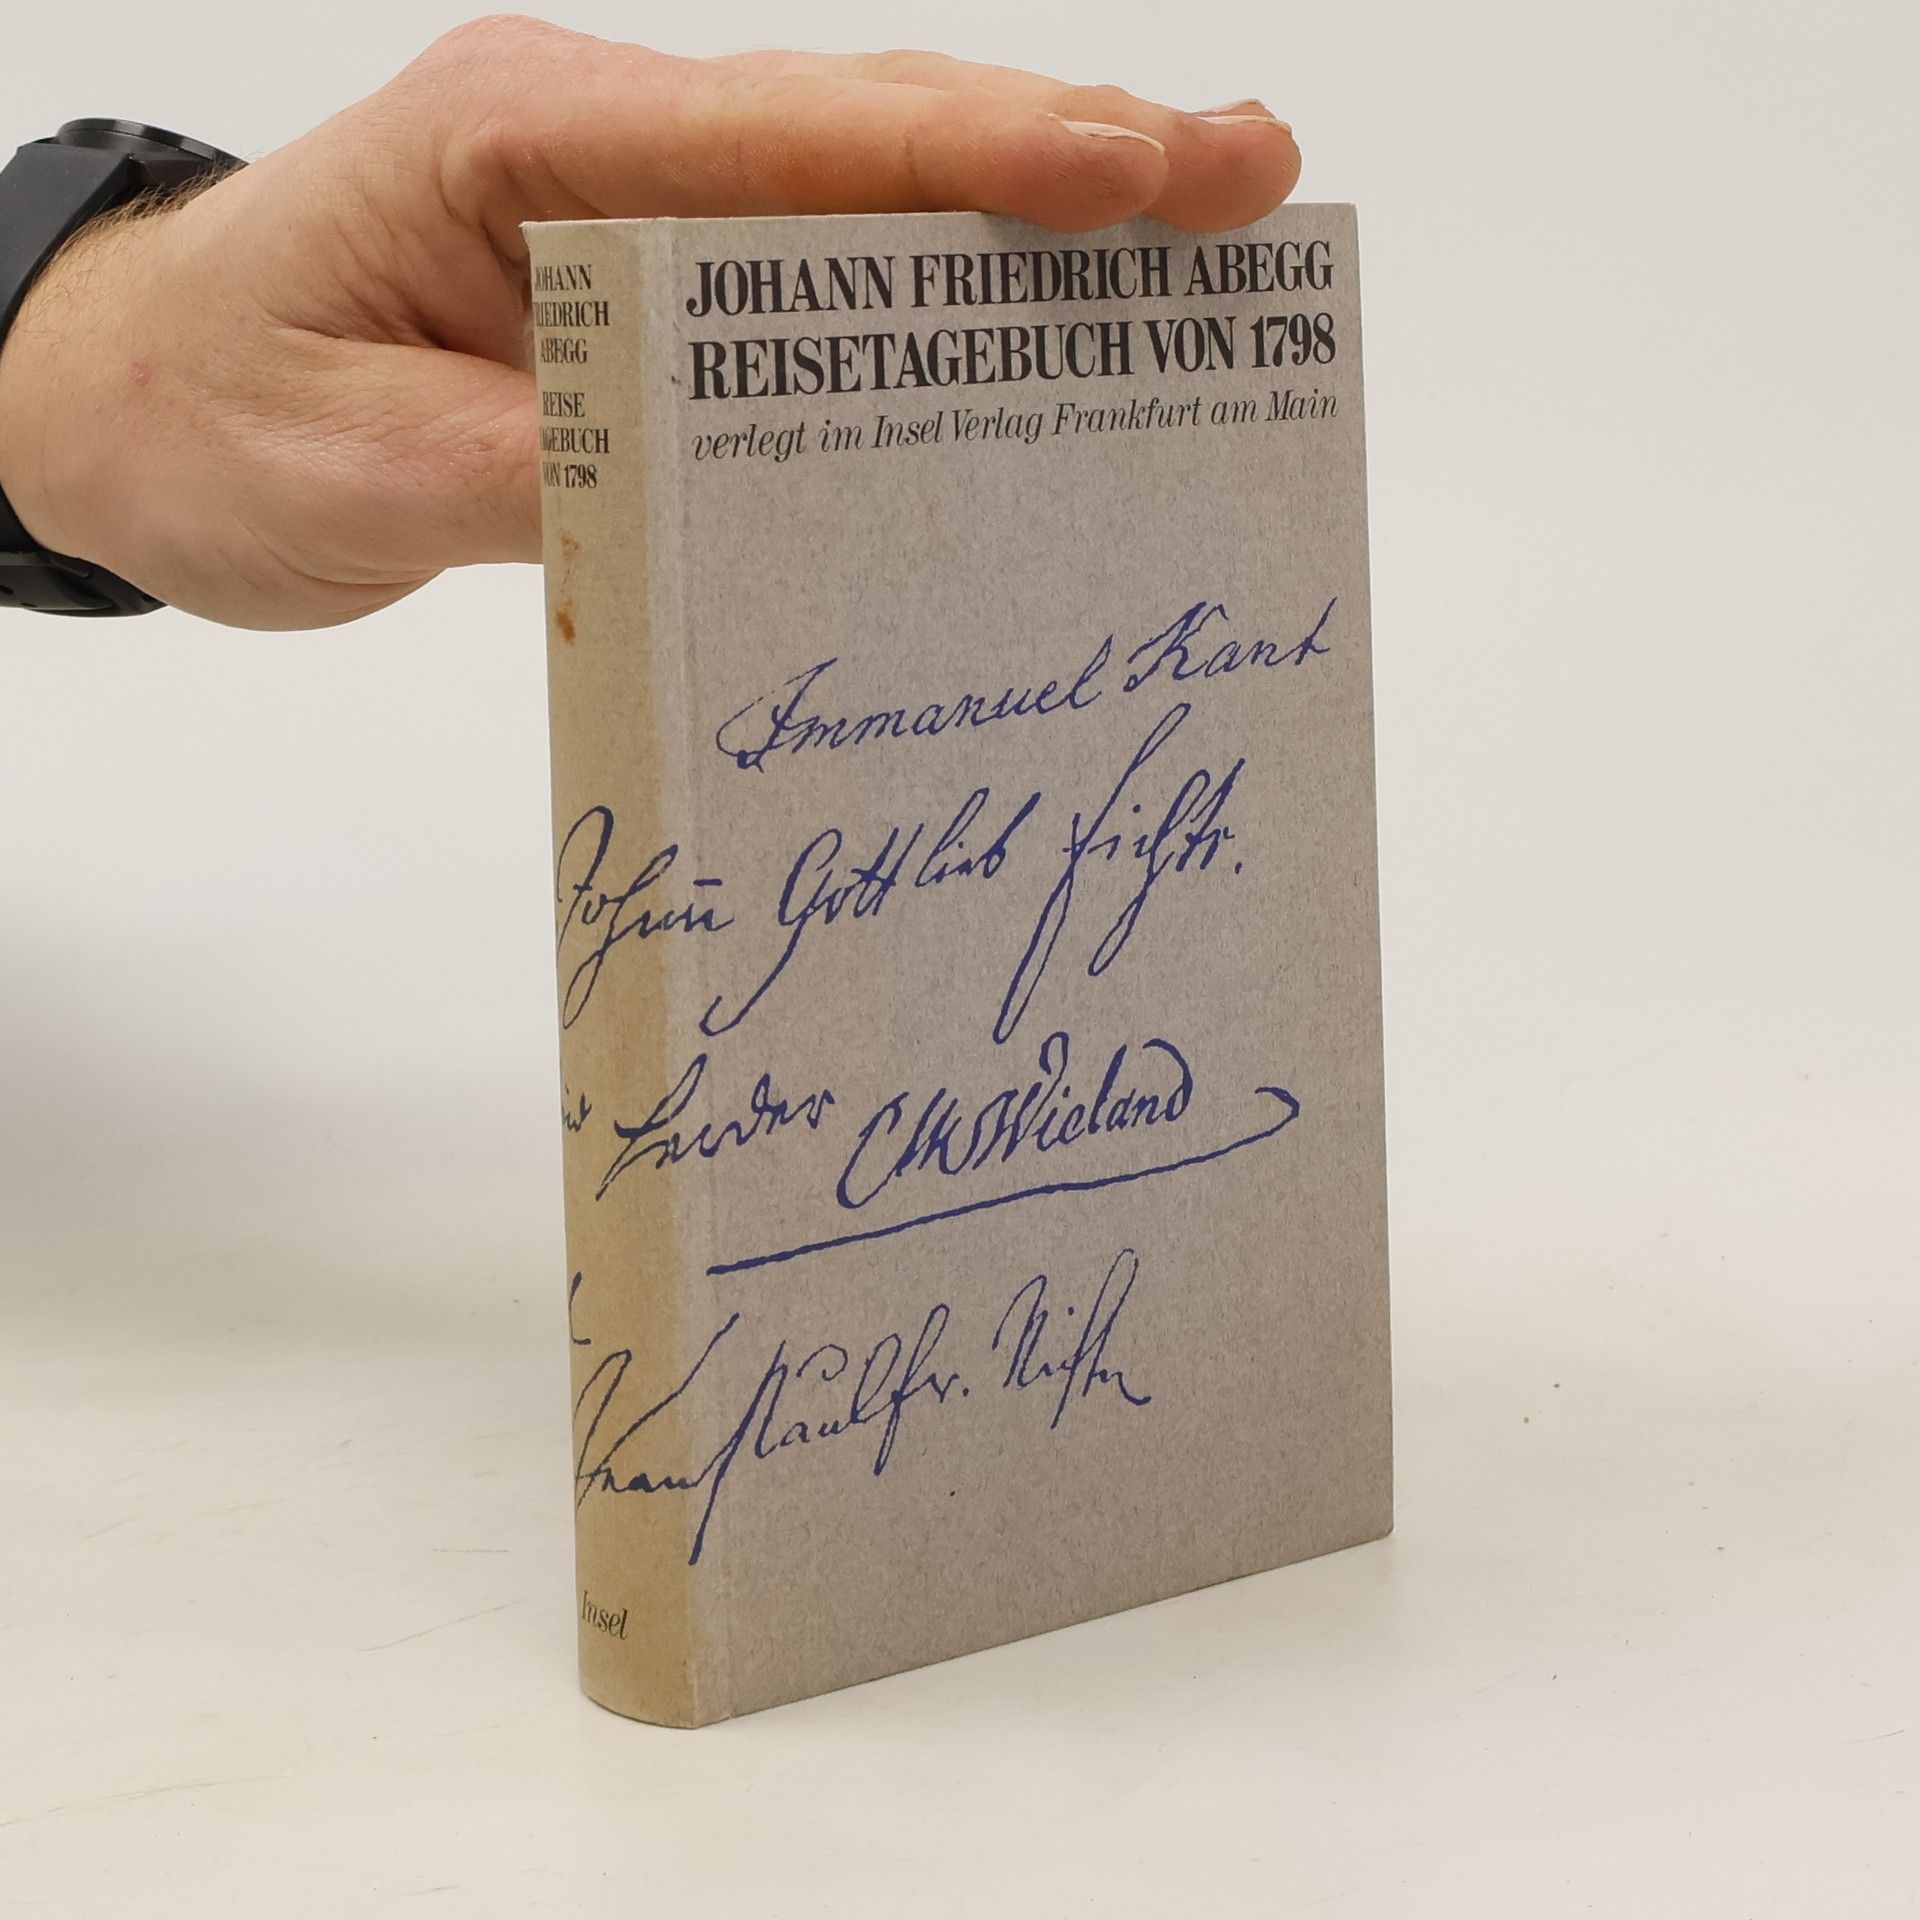 JOHANN FRIEDRICH ABEGG
REISETAGEBUCH VON 1798
verlegt im Insel Verlag Frankfurt am Main
Immanuel Kant
Johann Gottlieb Fichte.
Herder CMWieland
Jean Paul Fr. Richter
JOHANN
FRIEDRICH
ABEGG
REISE
TAGEBUCH
VON 1798
Insel